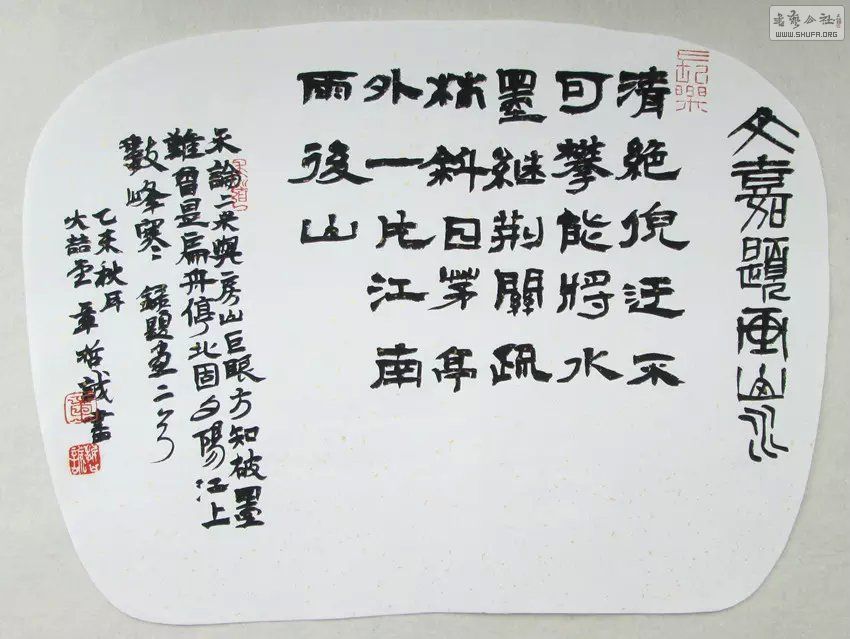 文嘉題画山水
清絶倪迂不
可攀能將水
墨継荆關疏
林斜日茅亭
外一片江南
雨後山
无論二米與房山巨眼方知破墨
難曾是扁舟停北固夕陽江上
數峰寒 錄題畫二首
乙未秋月
大喆堂章哲誠書
書藝公社
WWW.SHUFA.ORG